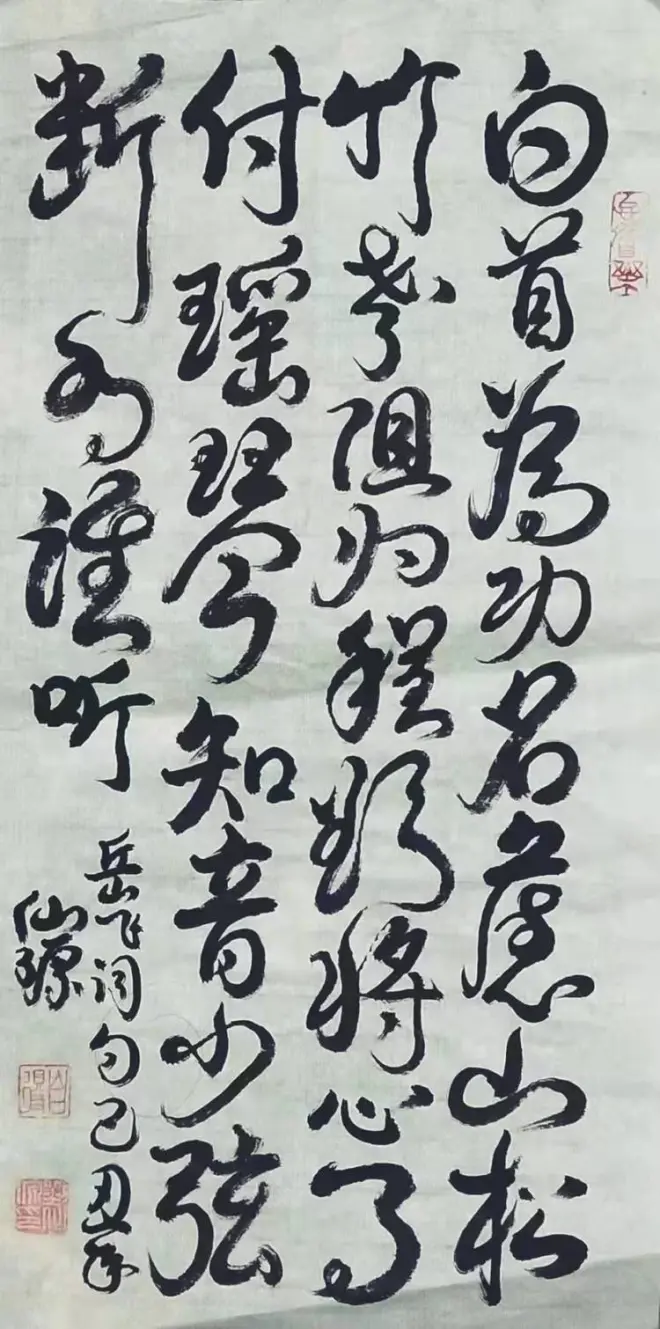 白首为功名旧山松
竹老阻归程欲将心事
付瑶琴知音少弦
断有谁听
岳飞词句己丑年
仙琼